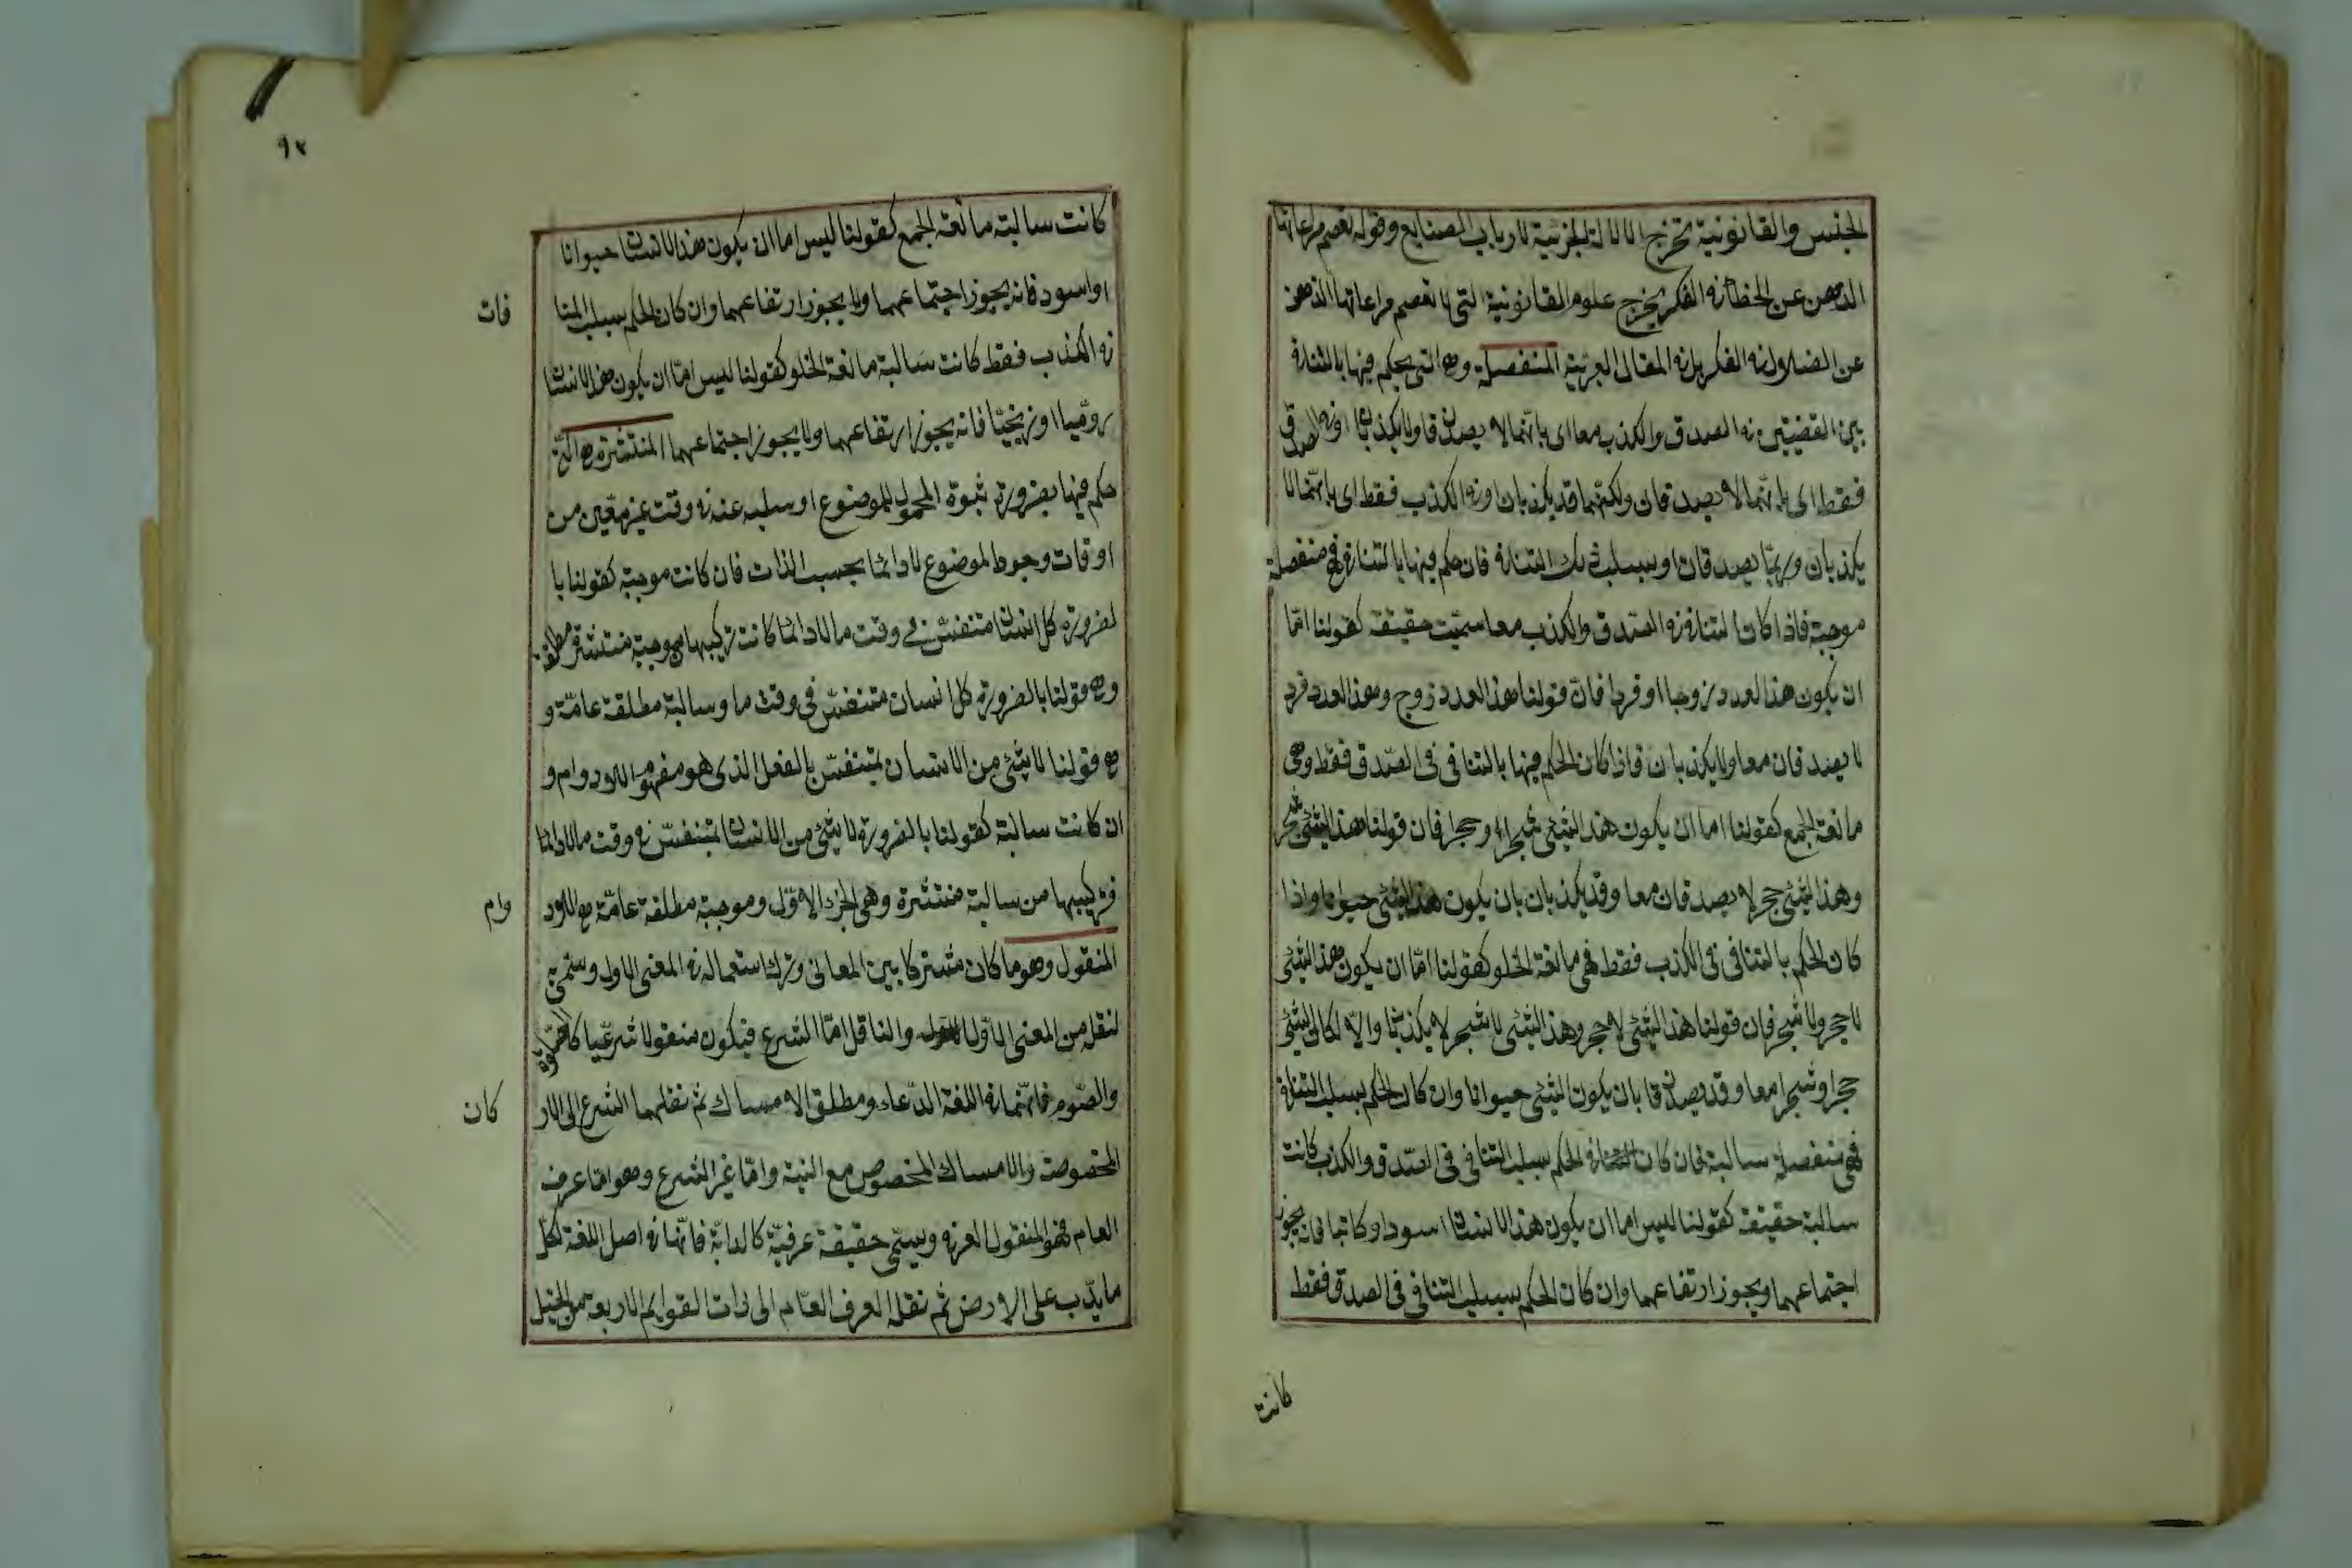 الجنس والقانونية تخرج الالالة الجزئية لارباب الصنايع وقوله تعصم مراعاتها
الذهن عن الخطأ فى الفكر يخرج علوم القانونية التى لا تعصم مراعاتها الذهن
عن الضلال فى الفكر بل فى المقال العربية المنفصلة وهى التى يحكم فيها بالتنافى
بين القضيتين فى الصدق والكذب معا اى بانهما لا يصدقان ولا يكذبان او فى الصدق
فقط اى بانهما لا يصدقان ولكنهما قد يكذبان او فى الكذب فقط اى بانهما لا
يكذبان وربما يصدقان او بسلب ذلك التنافى فان حكم فيها بالتنافى فهى منفصلة
موجبة فاذا كان التنافى فى الصدق والكذب معا سميت حقيقة كقولنا امّا
ان يكون هذا العدد زوجا او فردا فان قولنا هذا العدد زوج وهذا العدد فرد
لا يصدقان معا ولا يكذبان فاذا كان الحكم فيها بالتنافى فى الصدق فقط وهى
مانعة الجمع كقولنا اما ان يكون هذا الشئ شجرا او حجرا فان قولنا هذا الشئ شجر
وهذا الشئ حجر لا يصدقان معا وقد يكذبان بان يكون هذا الشئ حيوانا واذا
كان الحكم بالتنافى فى الكذب فقط فهى مانعة الخلو كقولنا امّا ان يكون هذا الشئ
لا حجر ولا شجر فان قولنا هذا الشئ لا حجر وهذا الشئ لا شجر لا يكذبان والّا لكان الشئ
حجرا وشجرا معا وقد يصدقا بان يكون الشئ حيوانا وان كان الحكم بسلب التنافى
فهى منفصلة سالبة فان كان الحكم بسلب التنافى فى الصدق والكذب كانت
سالبة حقيقة كقولنا ليس اما ان يكون هذا الانسان اسود او كاتبا فانه يجوز
اجتماعهما ويجوز ارتفاعهما وان كان الحكم بسلب التنافى فى الصدق فقط
كانت
٩٢
كانت سالبة مانعة الجمع كقولنا ليس اما ان يكون هذا الانسان حيوانا
او اسود فانه يجوز اجتماعهما ولا يجوز ارتفاعهما وان كان الحكم بسلب المنا
فات
فى الكذب فقط كانت سالبة مانعة الخلو كقولنا ليس امّا ان يكون هذا الانسان
روميّا او زنجيّا فانه يجوز ارتفاعهما ولا يجوز اجتماعهما المنتشرة هى التى
حكم فيها بضرورة ثبوة المحمول للموضوع او سلبه عنه فى وقت غير معين من
اوقات وجود الموضوع لا دائما بحسب الذات فان كانت موجبة كقولنا با
لضرورة كل انسان متنفس فى وقت ما لا دائما كانت تركيبها موجبة منتشرة مطلقة
وهى قولنا بالضرورة كل انسان متنفس فى وقت ما وسالبة مطلقة عامّة و
هى قولنا لا شئ من الانسان بمتنفس بالفعل الذى هو مفهوم اللادوام و
ان كانت سالبة كقولنا بالضرورة لا شئ من الانسان بمتنفس فى وقت ما لا دائما
فتركيبها من سالبة منتشرة وهى الجزء الاوّل وموجبة مطلقة عامّة هى اللاد
وام
المنقول وهو ما كان مشتركا بين المعانى وترك استعماله فى المعنى الاول وسمّى
لنقله من المعنى الاوّل والناقل امّا الشرع فيكون منقولا شرعيا كالصلوة
والصّوم فانّهما فى اللغة الدّعاء ومطلق الامساك ثم نقلهما الشرع الى الار
كان
المخصوصة والامساك المخصوص مع النية وامّا غير الشرع وهو امّا عرف
العام فهو المنقول العرفى ويسمّى حقيقة عرفيّة كالدابّة فانّها فى اصل اللغة لكل
ما يدّب على الارض ثم نقله العرف العام الى ذات القوايم الاربعة من الخيل